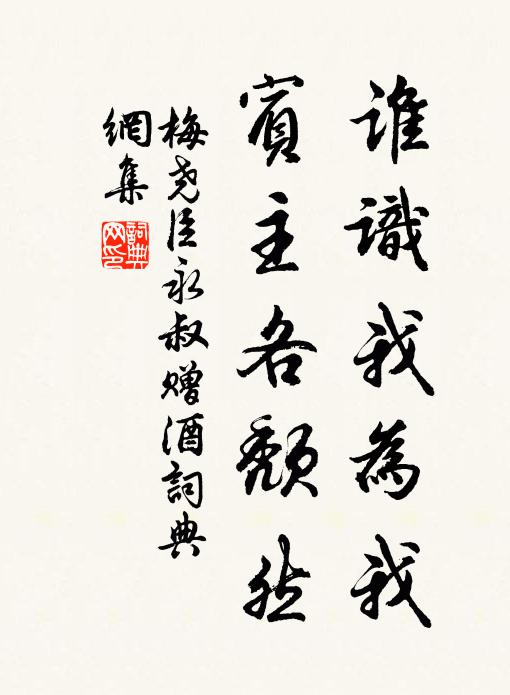 誰識我為我
賓主各頹然
梅堯臣永叔贈酒詞典
網集
詞典
网印